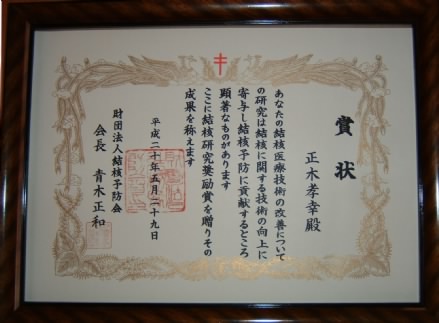 賞状
正木孝幸殿
あなたの結核医療技術の改善について
の研究は結核に関する技術の向上に
寄与し結核予防に貢献するところ
顕著なものがあります
ここに結核研究奨励賞を贈りその
成果を称えます
平成二十年五月二十九日
財団法人結核予防会
会長 青木正和